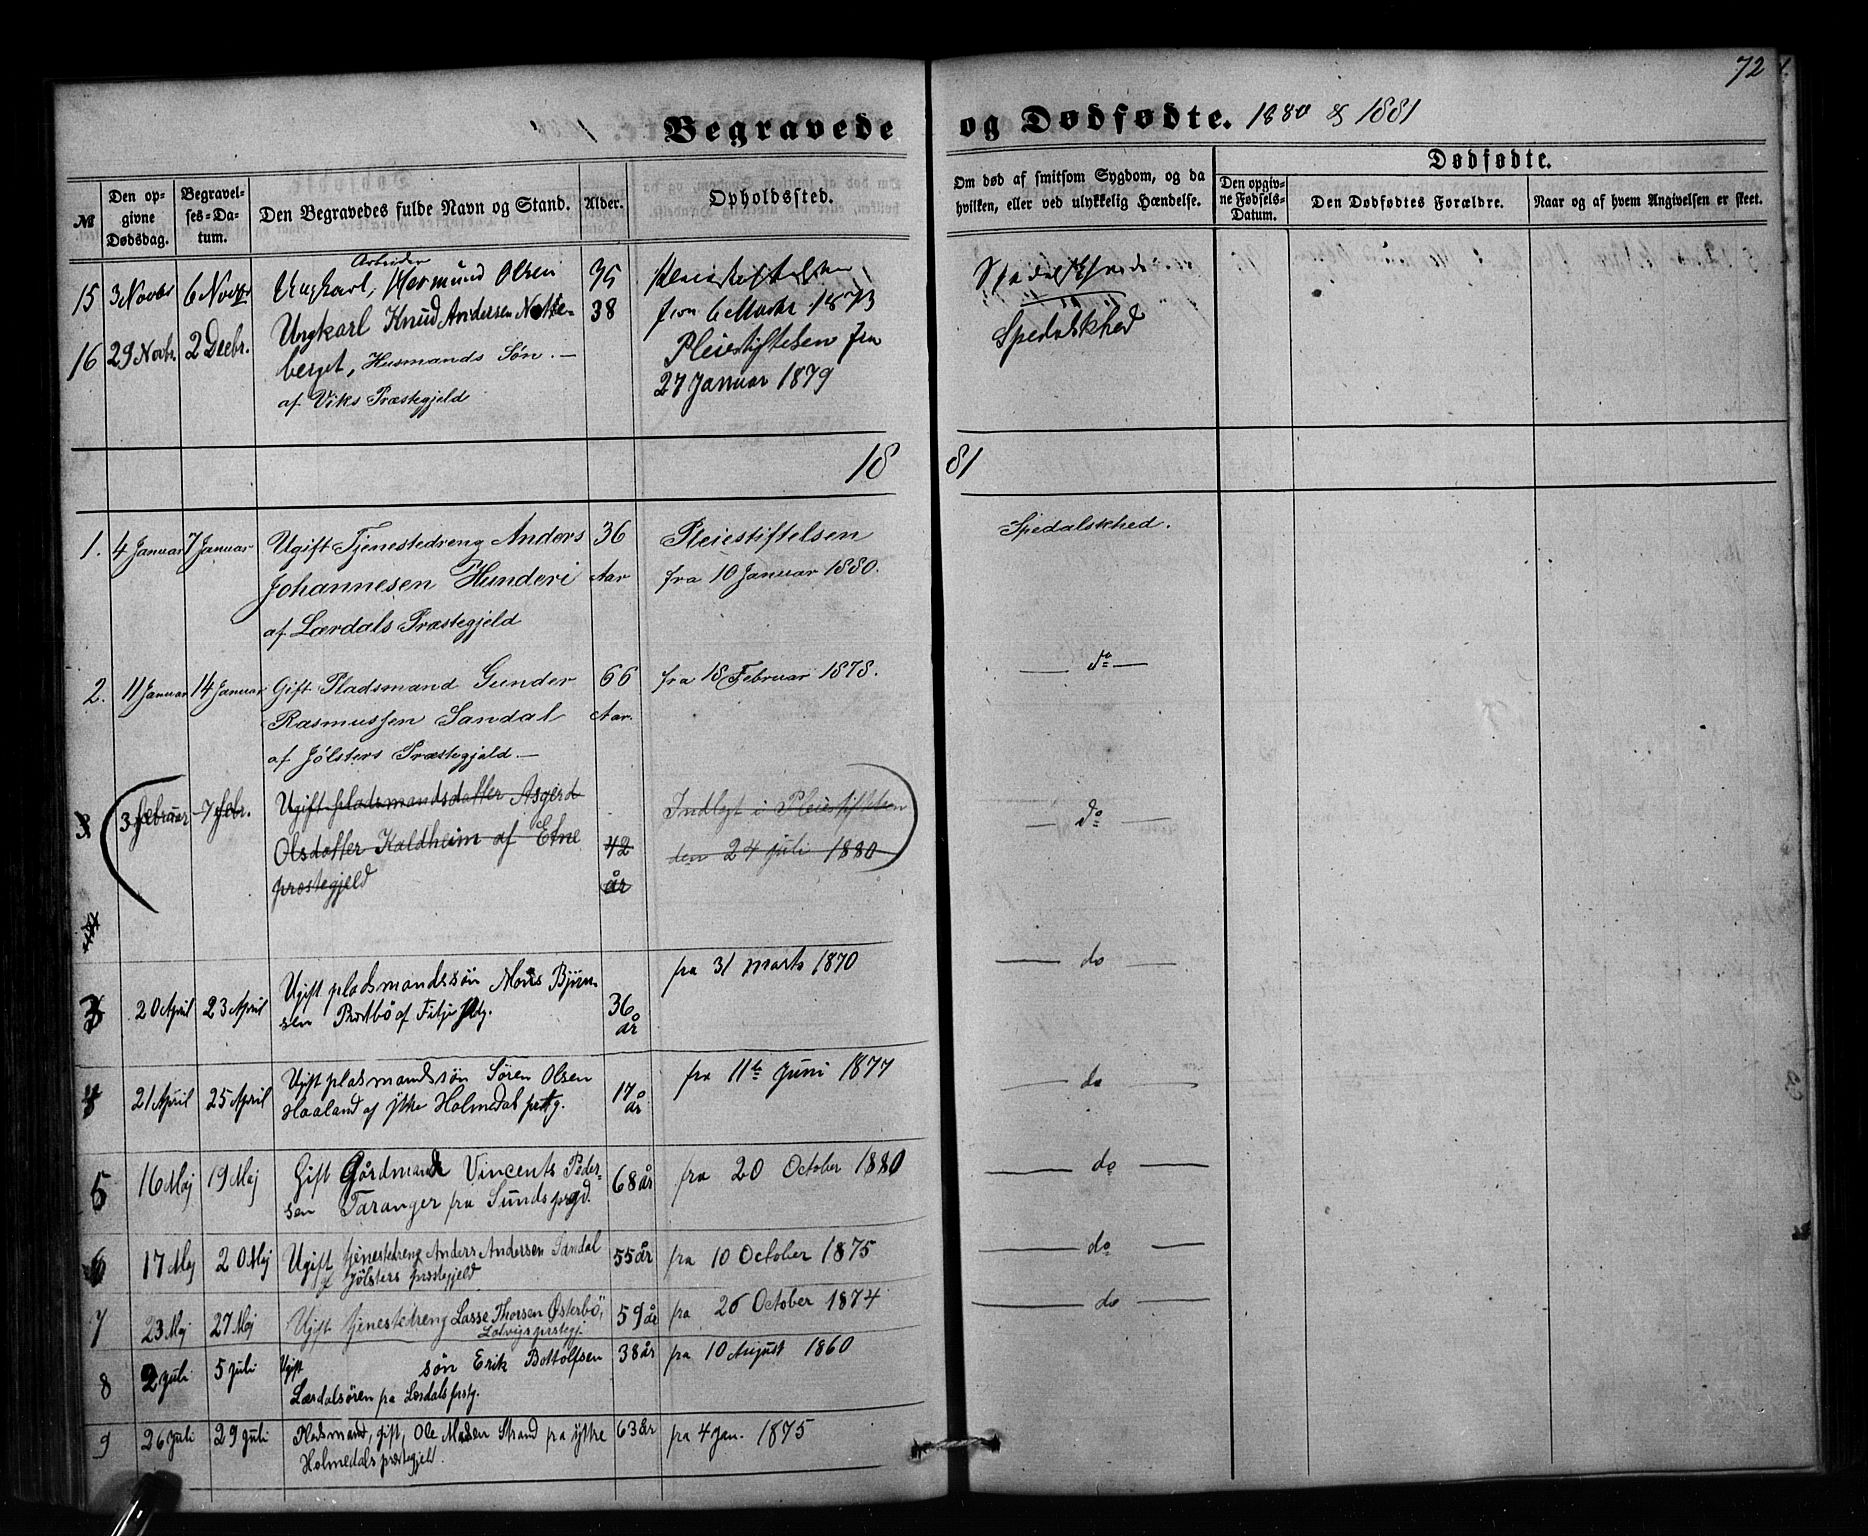 72
Begravede og Dødfødte. 1880 & 1881
№ Den opgivne Dødsdag. Begravelses-Datum. Den Begravedes fulde Navn og Stand. Alder. Opholdssted. Om død af smitsom Sygdom, og da hvilken, eller ved ulykkelig Hændelse. Dødfødte. Den opgivne Fødsels-Datum. Den Dødfødtes Forældre. Naar og af hvem Angivelsen er skeet.
Arbeider
15 3 Novbr 6 Novbr Ungkarl, Hermund Olsen 35
fra 6 Marts 1873
16 29 Novbr. 2 Decbr. Ungkarl Knud Andersen 38 Pleiestiftelsen fra Spedalskhed
berget, Husmands Søn. — 27 Januar 1879
af Viks Præstegjeld
1881
1. 4 Januar 7 Januar Ugift Tjenestedreng Anders 36 Pleiestiftelsen Spedalskhed.
Johannesen Hunderi Aar fra 10 Januar 1880.
af Lærdals Præstegjeld
2. 11 Januar 14 Januar Gift Pladsmand Gunder 66 fra 18 Februar 1878. — do —
Rasmussen Sandal Aar.
af Jølsters Præstegjeld. —
3 3 februar 7 febr. Ugift pladsmandsdatter Asgerd Indlagt i Pleiestiftelsen — do —
Olsdatter Kaldheim af Etne 42 den 24 juli 1880
præstegjeld år
3 20 April 23 April Ugift pladsmandssøn Mons 36 år fra 31 marts 1870 — do —
sen af Fitje
4 21 April 25 April Ugift pladsmandssøn Sören Olsen 17 år fra 11te juni 1877 — do —
Haaland af ytre Holmedal prstg.
5 16 Maj 19 Maj Gift Gårdmand Vincents Peder- 68 år fra 20 October 1880 — do —
sen Taranger fra Sunds prgd.
6 17 Maj 20 Maj Ugift tjenestedreng Anders Andersen Sandal 55 år fra 10 October 1875 — do —
af Jölsters præstegjeld
7 23 Maj 27 Maj Ugift tjenestedreng Lasse Thorsen Østerbö, 59 år fra 26 October 1874 — do —
Lavigs prstegj.
8 2 juli 5 juli Ugift søn Erik Bottolfsen 38 år fra 10 August 1860
Lærdalsören fra Lærdals prstg.
9 26 juli 29 juli Pladsmand, gift, Ole Madsen Strand fra ytre 63 år fra 4 jan. 1875
Holmedals præstegjeld.